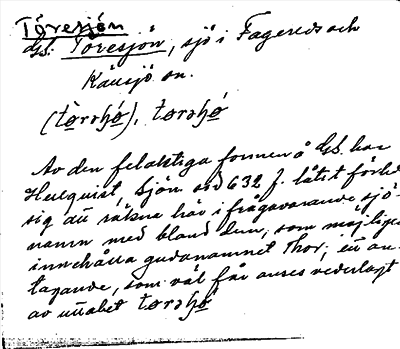 Toresjön
GS. Toresjön, sjö i Fagereds och
Källsjö sn.
(tòrsɧø), torsɧø
Av den felaktiga formen å GS. har
Hellquist, Sjön. sid 632 f. låtit förled
sig att räkna här ifrågavarande sjö-
namn med bland dem, som möjligen
innehålla gudanamnet Thor; ett an-
tagande, som väl får anses vederlagt
av uttalet torsɧø